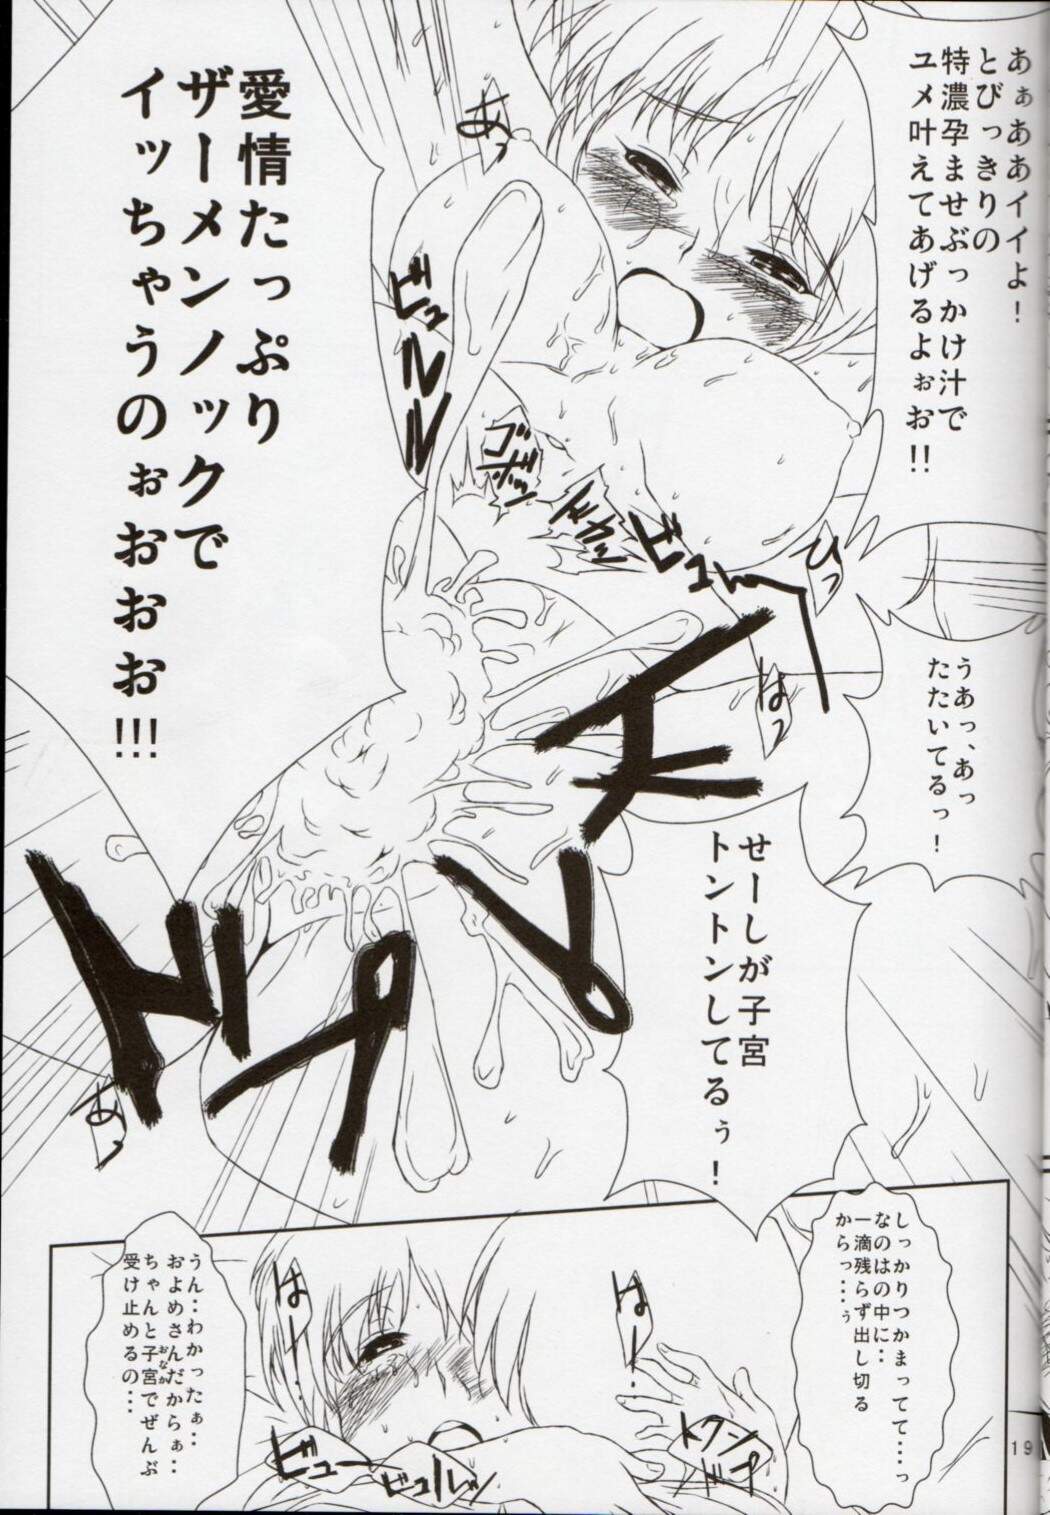 あぁああイイよ!
とびっきりの
特濃孕ませぶっかけ汁で
ユメ叶えてあげるよぉお!!
あっ
愛情たっぷり
ザーメンノックで
イッちゃうのぉおおお!!!
ビュルルル
ゴボッ
ドカッ
ひっ
うあっ、あっ
たたいてるっ!
はっ
せーしが子宮
トントンしてるぅ!
ドプドプ
あっ
しっかりつかまってて…っ
なのはの中に‥
一滴残らず出し切る
からっ…ぅ
はー…
はー…‥
うん‥わかったぁ‥
およめさんだからぁ‥
ちゃんと子宮でぜんぶ
おなか
受け止めるの…
トクン
ビュー
ビュルルッ
19